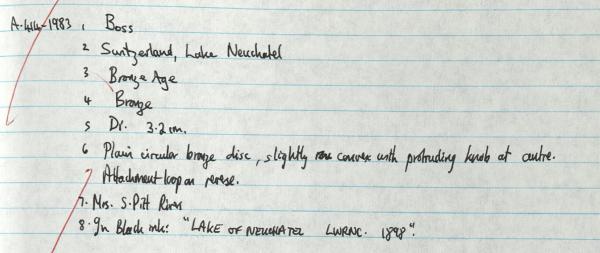 A.414-1983 1 Boss
2 Switzerland, Lake Neuchatel
3 Bronze Age
4 Bronze
5 Dr. 3.2 cm.
6 Plain circular bronze disc, slightly convex with protruding knob at centre.
Attachment loop on reverse.
7. Mrs. S. Pitt Rivers
8. In Black ink: "LAKE OF NEUCHATEL LWRNC. 1898".